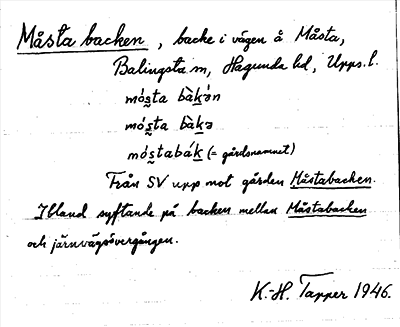 Måsta backen, backe i vägen å Måsta,
Balingsta sn, Hagunda hd, Upps. l.
mó̀s̰ta bàḵən
mó̀s̰ta bàḵə
mós̰tabáḵ (= gårdsnamnet)
Från SV upp mot gården Måstabacken.
Ibland syftande på backen mellan Måstabacken
och järnvägsövergången.
K.-H. Tapper 1946.